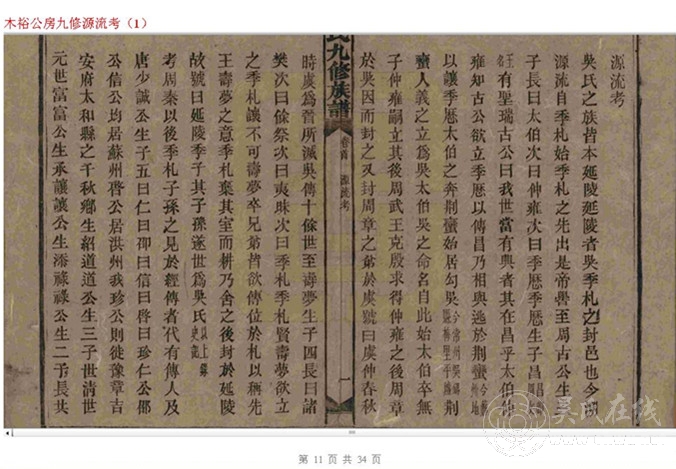 木裕公房九修源流考（1）
源流考
吳氏之族皆本延陵延陵者吳季札之封邑也今溯
源流自季札始季札之先出是帝嚳至周古公生三
子長曰太伯次曰仲雍次曰季歷季歷生子昌
王有聖瑞古公曰我世當有興者其在昌乎太伯
雍知古公欲立季歷以傳昌乃相與逃於荊蠻
以讓季歷太伯之奔荊蠻始居勾吳今常州吳縣荊
蠻人義之立為吳太伯吳之命名自此始太伯卒無
子仲雍嗣立其後周武王克殷求得仲雍之後周章
於吳因而封之又封周章之弟於虞號曰虞仲春秋
氏九修族譜 卷首 源流考 一
時虞為晉所滅吳傳十餘世至壽夢生子四長曰諸
樊次曰餘祭次曰夷昧次曰季札季札賢壽夢欲立
之季札讓不可壽夢卒兄弟皆欲傳位於札以稱先
王壽夢之意季札棄其室而耕乃舍之後封於延陵
故號曰延陵季子其子孫遂世為吳氏以上錄史記
考周秦以後季札子孫之見於經傳者代有傳人及
唐少誠公生子五曰仁曰卲曰信曰啓曰珍仁公卲
公信公均居蘇州啓公居洪州我珍公則徙豫章吉
安府太和縣之千秋鄉生紹道道公生三子世清世
元世富富公生承讓讓公生添祿祿公生二子長共
吴氏在线
第 11 页 共 34 页